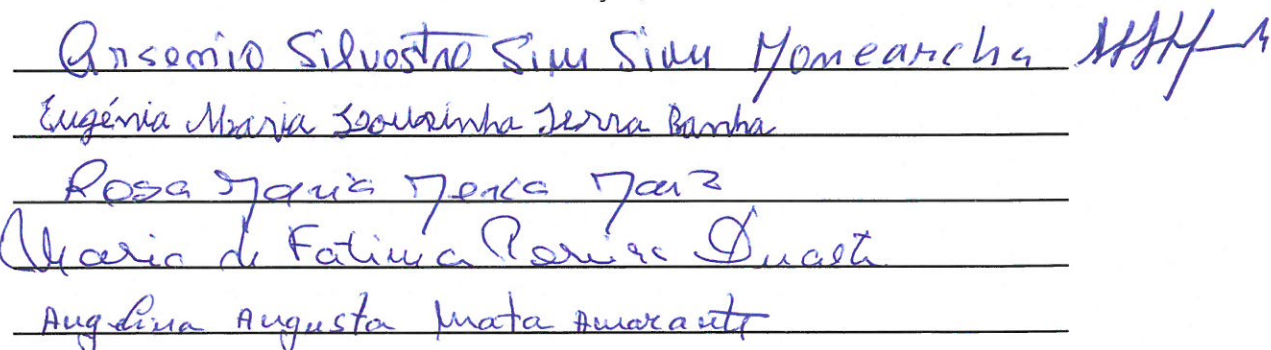 Arsenio Silvestre Sim Sim Monearcha
Eugénia Maria Lourinha Serra Banha
Rosa Maria
Maria de Fatima Pereira Duarte
Angelina Augusta Mata Amarante